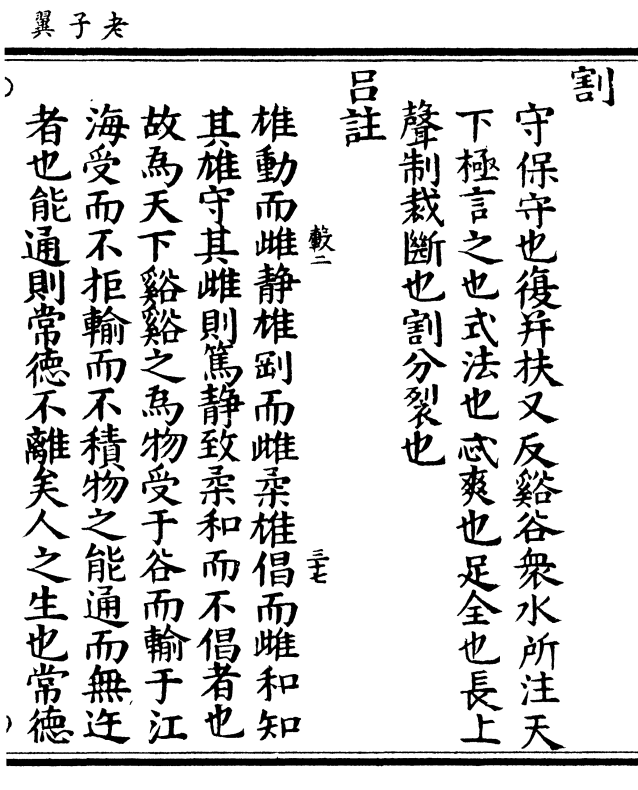 老子翼
割
守保守也復并扶又反谿谷衆水所注天
下極言之也式法也忒爽也足全也長上
聲制裁斷也割分裂也
呂註
雄動而雌静雄剛而雌柔雄倡而雌和知
其雄守其雌則篤静致柔和而不倡者也
故為天下谿谿之為物受于谷而輸于江
海受而不拒輸而不積物之能通而無迕
者也能通則常德不離矣人之生也常德
二
三七